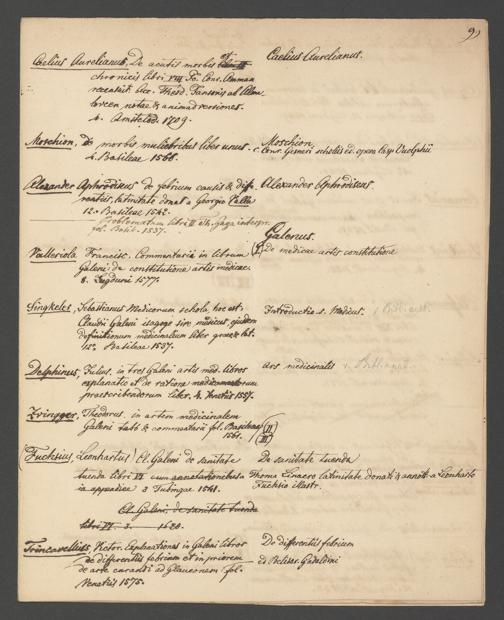 9)
Caelius Aurelianus, De acutis morbis et
chronicis libri VIII Jo. Conr. Amman
recensuit acc. Theod. Janssonii ab Alme
loveen, notae & animadversiones.
4. Amstelod. 1709.
Caelius Aurelianus.
Moschion, De morbis muliebribus liber unus.
4. Basileae 1566.
Moschion.
c. Conr. Gesneri scholiis ed. opera Casp. Wolphii
Alexander Aphrodiseus de febrium causis & diffe
rentiis, latinitate donat. a Georgio Valla
12. Basileae 1542.
Problematum libri II
fol. Basil. 1537.
Alexander Aphrodiseus.
Galenus.
Valleriola Francisc. Commentarii in librum
Galeni de constitutione artis medicae
8. Lugduni 1577.
De medicae artis constitutione
Singkeler, Sebastianus Medicorum schola, hoc est.
Claudii Galeni isagoge sive medicus, ejusdem
definitionum medicinalium liber graece & lat.
12. Basileae 1537.
Introductio s. Medicus.
Delphinus, Julius, in tres Galeni artis med. libros
explanatio et de ratione medicamentorum
praescribendorum liber, 4. Venetiis 1557.
Ars medicinalis
Zvingger, Theodorus, in artem medicinalem
Galeni tabb & commentarii fol. Basileae
1561.
(II)
(III)
(Fuchsius, Leonhartus) Cl. Galeni de sanitate
tuenda libri VI cum annotationibus
in appendice 3 Tubingae 1541.
De sanitate tuenda
Thoma Linacro latinitate donati & annott. a Leonharto
Fuchsio illustr.
Cl. Galeni, de sanitate tuenda
libri VI. 3.
Trincavellius, Victor. Explanationes in Galeni libros
de differentiis febrium et in priorem
de arte curandi ad Glauconem fol.
Venetiis 1575.
De differentiis febrium